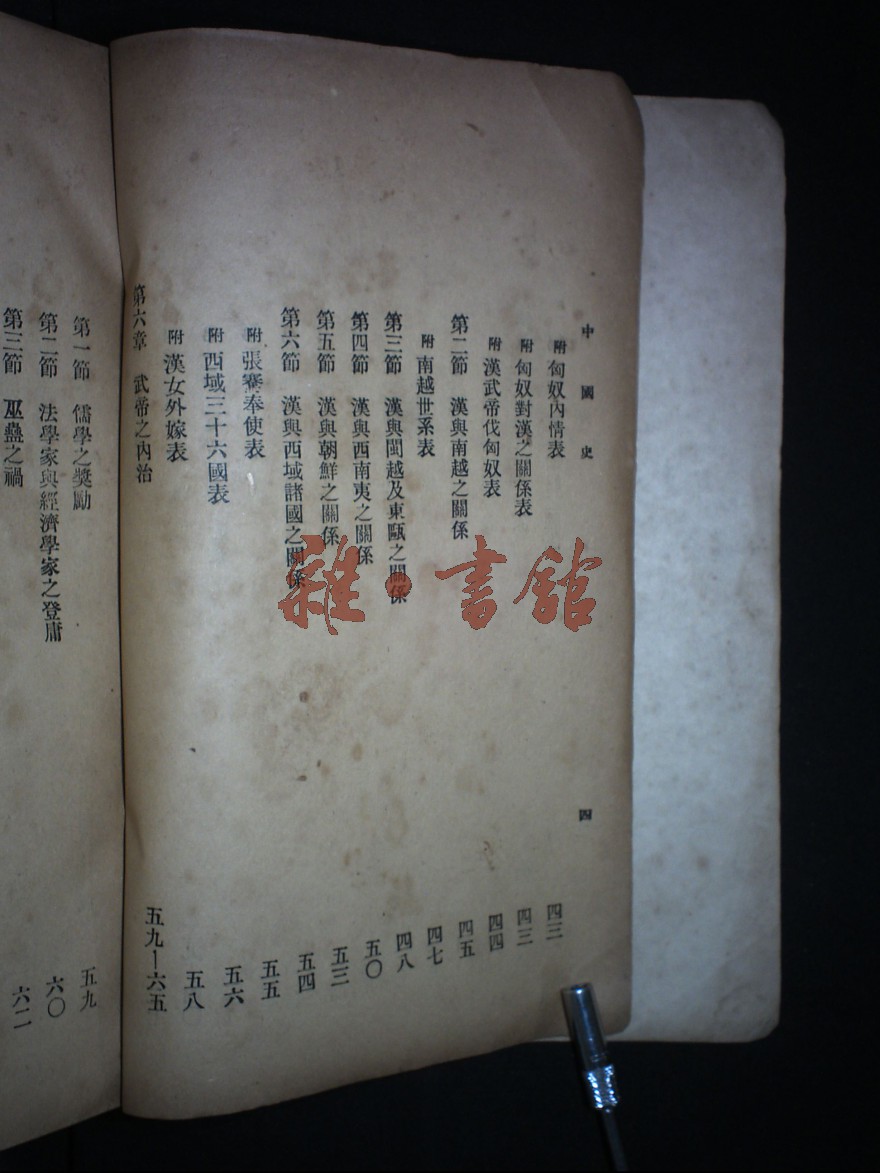 中國史
四
附 匈奴內情表 四三
附 匈奴對漢之關係表 四三
附 漢武帝伐匈奴表 四四
第二節 漢與南越之關係 四五
附 南越世系表 四七
第三節 漢與閩越及東甌之關係 四八
第四節 漢與西南夷之關係 五〇
第五節 漢與朝鮮之關係 五三
第六節 漢與西域諸國之關係 五四
附 張騫奉使表 五五
附 西域三十六國表 五六
附 漢女外嫁表 五八
第六章 武帝之內治 五九—六五
第一節 儒學之獎勵 五九
第二節 法學家與經濟學家之登庸 六〇
第三節 巫蠱之禍 六二
雜·書館